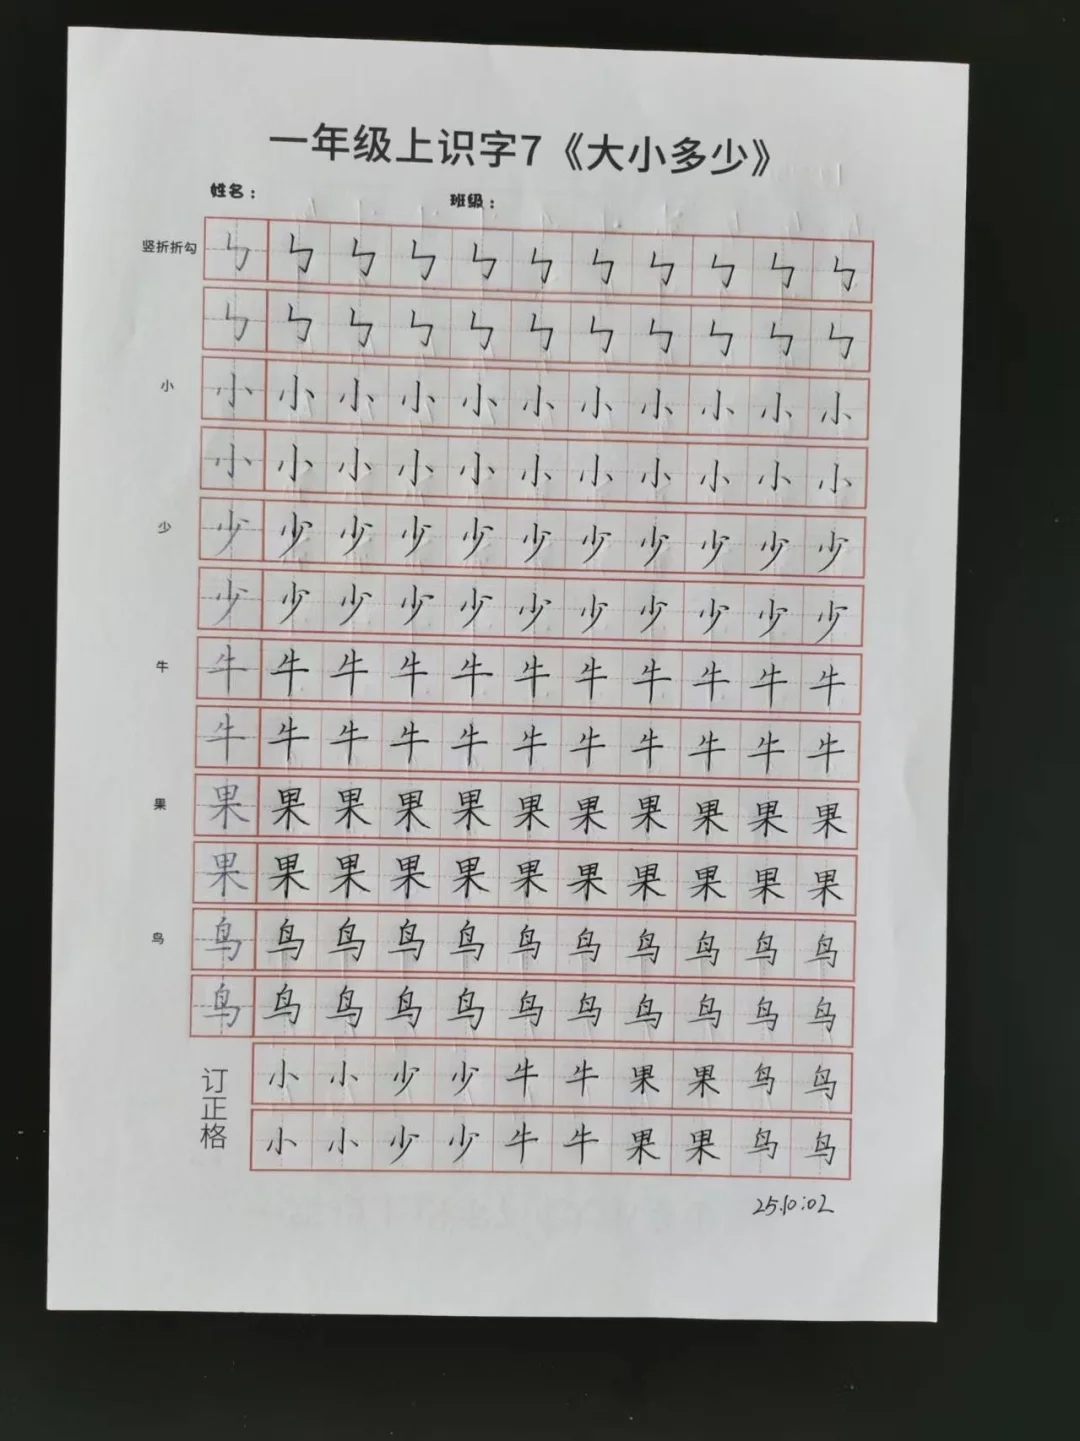 一年级上识字7《大小多少》
姓名： 班级：
竖折折勾 ㄣ ㄣ ㄣ ㄣ ㄣ ㄣ ㄣ ㄣ ㄣ ㄣ ㄣ
ㄣ ㄣ ㄣ ㄣ ㄣ ㄣ ㄣ ㄣ ㄣ ㄣ ㄣ
小 小 小 小 小 小 小 小 小 小 小 小
小 小 小 小 小 小 小 小 小 小 小
少 少 少 少 少 少 少 少 少 少 少 少
少 少 少 少 少 少 少 少 少 少 少
牛 牛 牛 牛 牛 牛 牛 牛 牛 牛 牛 牛
牛 牛 牛 牛 牛 牛 牛 牛 牛 牛 牛
果 果 果 果 果 果 果 果 果 果 果 果
果 果 果 果 果 果 果 果 果 果 果
鸟 鸟 鸟 鸟 鸟 鸟 鸟 鸟 鸟 鸟 鸟 鸟
鸟 鸟 鸟 鸟 鸟 鸟 鸟 鸟 鸟 鸟 鸟
订正格
小 小 少 少 牛 牛 果 果 鸟 鸟
小 小 少 少 牛 牛 果 果 鸟 鸟
25.10:02